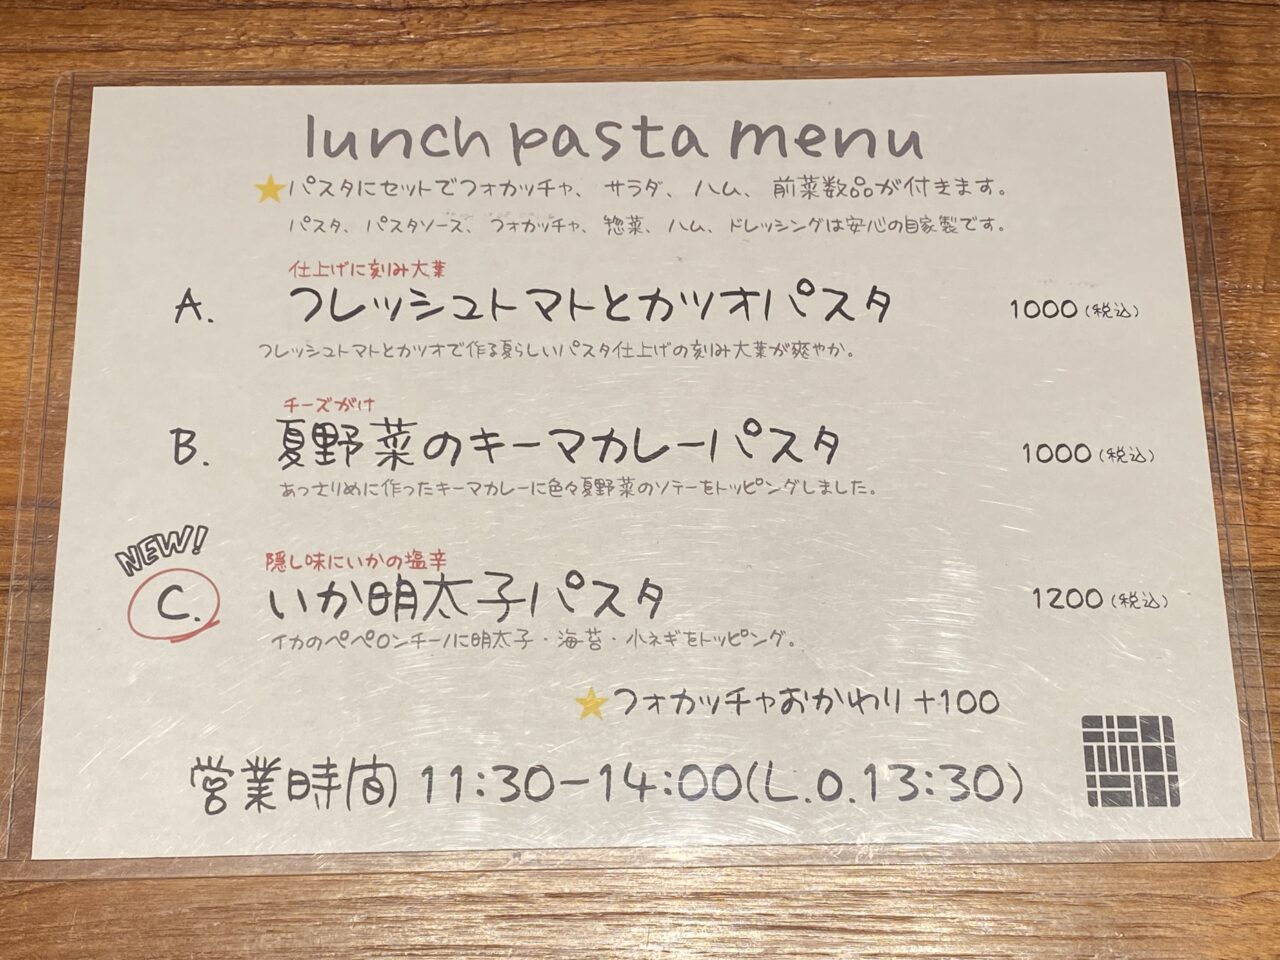 lunch pasta menu
★パスタにセットでフォカッチャ、サラダ、ハム、前菜数品が付きます。
パスタ、パスタソース、フォカッチャ、惣菜、ハム、ドレッシングは安心の自家製です。
仕上げに刻み大葉
A. フレッシュトマトとカツオパスタ 1000(税込)
フレッシュトマトとカツオで作る夏らしいパスタ仕上げの刻み大葉が爽やか。
チーズがけ
B. 夏野菜のキーマカレーパスタ 1000(税込)
あっさりめに作ったキーマカレーに色々夏野菜のソテーをトッピングしました。
NEW!
隠し味にいかの塩辛
C. いか明太子パスタ 1200(税込)
イカのペペロンチーノに明太子・海苔・小ネギをトッピング。
★フォカッチャおかわり+100
営業時間 11:30-14:00(L.o.13:30)